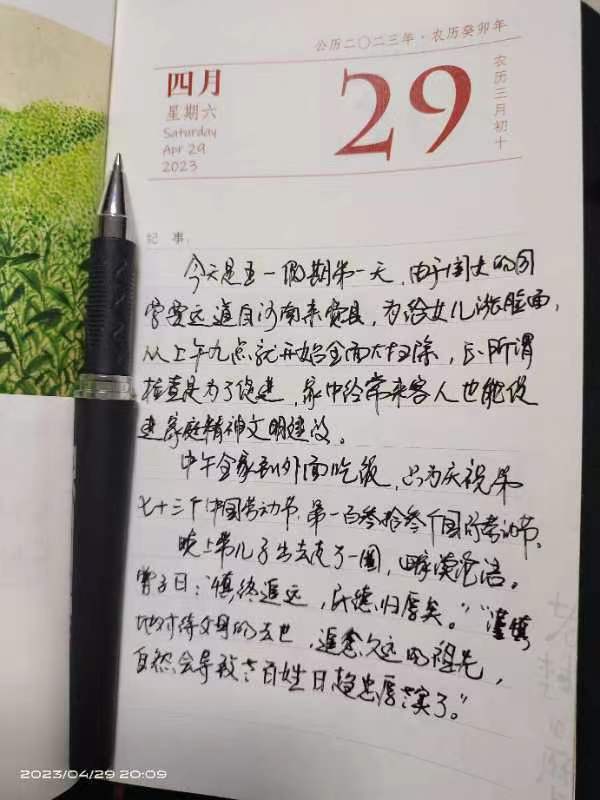 公历二〇二三年·农历癸卯年
四月
星期六
Saturday
Apr 29
2023
29
农历三月初十
纪 事:
今天是五一假期第一天,由于闺女的同
学要远道自河南来费县,为给女儿涨脸面,
从上午九点就开始全面大扫除,正所谓
检查是为了促进,家中经常来客人也能促
进家庭精神文明建设。
中午全家到外面吃饭,只为庆祝第
七十三个中国劳动节,第一百叁拾叁个国际劳动节。
晚上带儿子出去走了一圈,畔读论语。
曾子曰:“慎终追远,民德归厚矣。”“谨慎
地对待父母的去世,追念久远的祖先,
自然会导致老百姓日趋忠厚老实了。”
2023/04/29 20:09